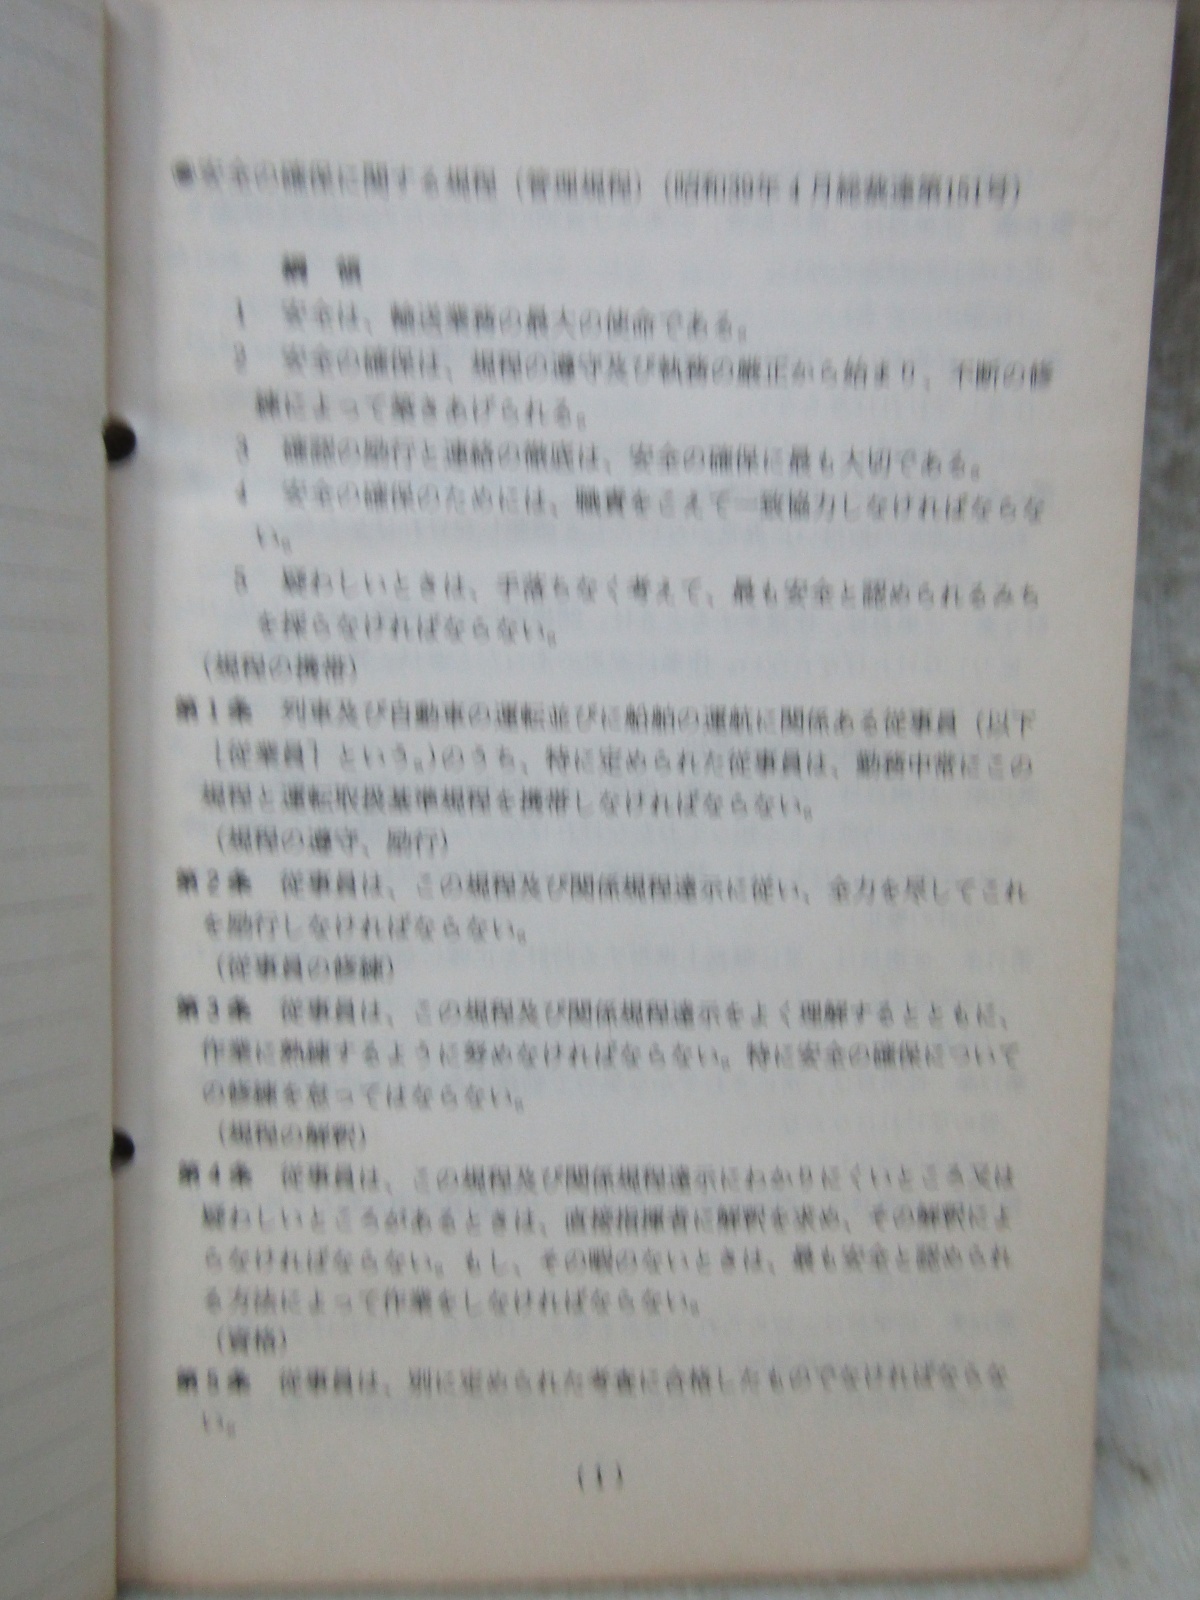 ●安全の確保に関する規程（管理規程）（昭和39年4月総裁達第151号）
綱領
1 安全は、輸送業務の最大の使命である。
2 安全の確保は、規程の遵守及び執務の厳正から始まり、不断の修
練によって築きあげられる。
3 確認の励行と連絡の徹底は、安全の確保に最も大切である。
4 安全の確保のためには、職責をこえて一致協力しなければならな
い。
5 疑わしいときは、手落ちなく考えて、最も安全と認められるみち
を採らなければならない。
（規程の携帯）
第1条 列車及び自動車の運転並びに船舶の運航に関係ある従事員（以下
「従業員」という。）のうち、特に定められた従事員は、勤務中常にこの
規程と運転取扱基準規程を携帯しなければならない。
（規程の遵守、励行）
第2条 従事員は、この規程及び関係規程達示に従い、全力を尽してこれ
を励行しなければならない。
（従事員の修練）
第3条 従事員は、この規程及び関係規程達示をよく理解するとともに、
作業に熟練するように努めなければならない。特に安全の確保について
の修練を怠ってはならない。
（規程の解釈）
第4条 従事員は、この規程及び関係規程達示にわかりにくいところ又は
疑わしいところがあるときは、直接指揮者に解釈を求め、その解釈によ
らなければならない。もし、その暇のないときは、最も安全と認められ
る方法によって作業をしなければならない。
（資格）
第5条 従事員は、別に定められた考査に合格したものでなければならな
い。
（1）